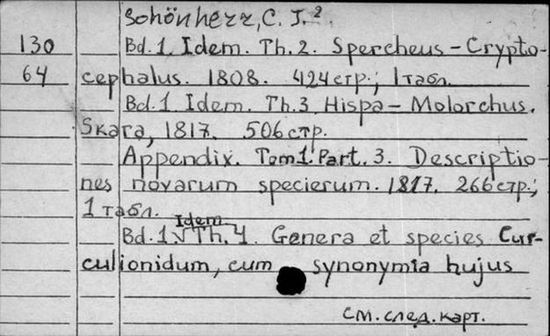 Schönherr, C. J. 2
130 Bd. 1. Idem. Th. 2. Spercheus – Crypto-
64 cephalus. 1808. 424 стр.; 1 табл.
Bd. 1 Idem. Th. 3 Hispa – Molorchus.
Skara, 1817. 506 стр.
Appendix. Tom 1. Part. 3. Descriptio-
nes novarum specierum. 1817. 266 стр.;
1 табл.
Bd. 1 Idem Th. 4. Genera et species Cur-
culionidum, cum synonymia hujus
См. след. карт.